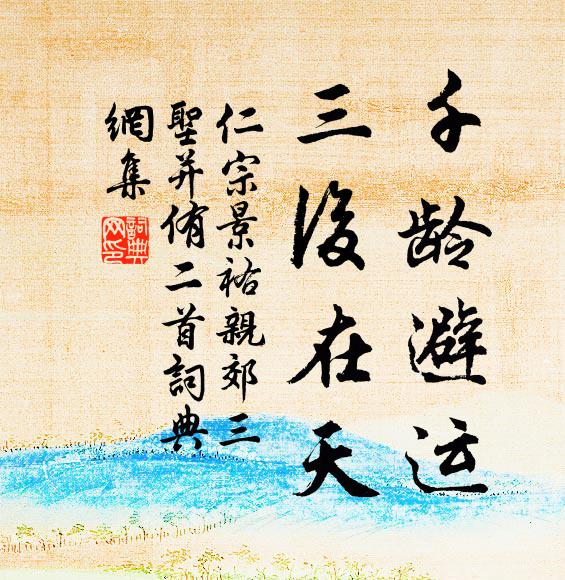 千龄避运
三後在天
仁宗景祐親郊三
聖并侑二首詞典
網集
詞典
网印